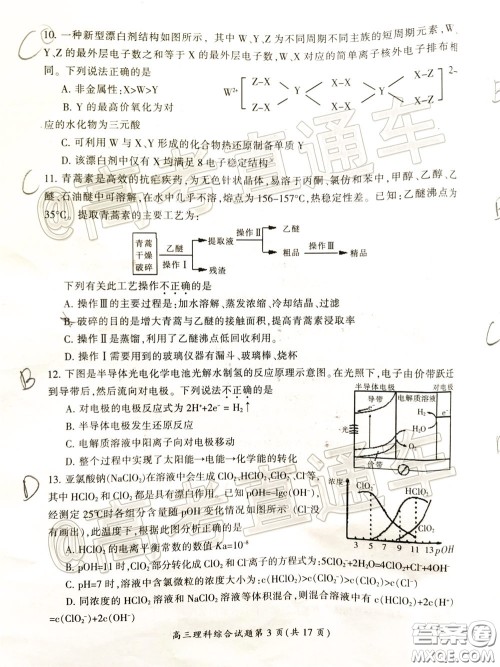 10. 一种新型漂白剂结构如图所示, 其中 W、Y、Z 为不同周期不同主族的短周期元素, W、
Y、Z 的最外层电子数之和等于 X 的最外层电子数, W、X 对应的简单离子核外电子排布相
同。下列说法正确的是
A. 非金属性: X>W>Y
B. Y 的最高价氧化为对
应的水化物为三元酸
W²⁺ [ Z-X Z-X Y X-X X-X Y X-Z X-Z ] 2-
C. 可利用 W 与 X、Y 形成的化合物热还原制备单质 Y
D. 该漂白剂中仅有 X 均满足 8 电子稳定结构
C
11. 青蒿素是高效的抗疟疾药, 为无色针状晶体, 易溶于丙酮、氯仿和苯中, 甲醇、乙醇、乙
醚、石油醚中可溶解, 在水中几乎不溶, 熔点为 156~157°C, 热稳定性差。已知: 乙醚沸点为
35°C。提取青蒿素的主要工艺为:
青蒿 干燥 破碎 乙醚 操作Ⅰ 提取液 残渣 操作Ⅱ 乙醚 粗品 操作Ⅲ 精品
下列有关此工艺操作不正确的是
A. 操作Ⅲ的主要过程是: 加水溶解、蒸发浓缩、冷却结晶、过滤
B. 破碎的目的是增大青蒿与乙醚的接触面积, 提高青蒿素的浸取率
C. 操作Ⅱ是蒸馏, 利用了乙醚沸点低回收利用。
D. 操作Ⅰ需要用到的玻璃仪器有漏斗、玻璃棒、烧杯
B
12. 下图是半导体光电化学电池光解水制氢的反应原理示意图。在光照下, 电子由价带跃迁
到导带后, 然后流向对电极。下列说法不正确的是
A. 对电极的电极反应式为 2H⁺+2e⁻ = H₂↑
B. 半导体电极发生还原反应
C. 电解质溶液中阳离子向对电极移动
D. 整个过程中实现了太阳能→电能→化学能的转化
半导体电极 对电极
导带 电解质溶液
光
H₂
H₂O
O₂
价带
D
13. 亚氯酸钠(NaClO₂)在溶液中会生成 ClO₂、HClO₂、ClO₂⁻、Cl⁻等,
其中 HClO₂ 和 ClO₂ 都是具有漂白作用。已知 pOH=-lgc(OH⁻),
经测定 25°C时各组分含量随 pOH 变化情况如图所示 (Cl⁻没
有画出), 此温度下, 根据图分析正确的是
A. HClO₂ 的电离平衡常数的数值 Ka=10⁻⁶
B. pOH=11 时, ClO₂⁻部分转化成 ClO₂ 和 Cl⁻离子的方程式为: 5ClO₂⁻+2H₂O=4ClO₂+Cl⁻+4OH⁻
C. pH=7 时, 溶液中含氯微粒的浓度大小为: c(HClO₂)>c(ClO₂⁻)>c(ClO₂)>c(Cl⁻)
D. 同浓度的 HClO₂ 溶液和 NaClO₂ 溶液等体积混合, 则混合溶液中有 c(HClO₂)+2c(H⁺)
=c(ClO₂⁻)+2c(OH⁻)
浓度 ClO₂⁻ HClO₂ ClO₂
3 5 7 9 11 13 pOH
高三理科综合试题第 3 页(共 17 页)
高考直通车
答案圈
MXQE.COM